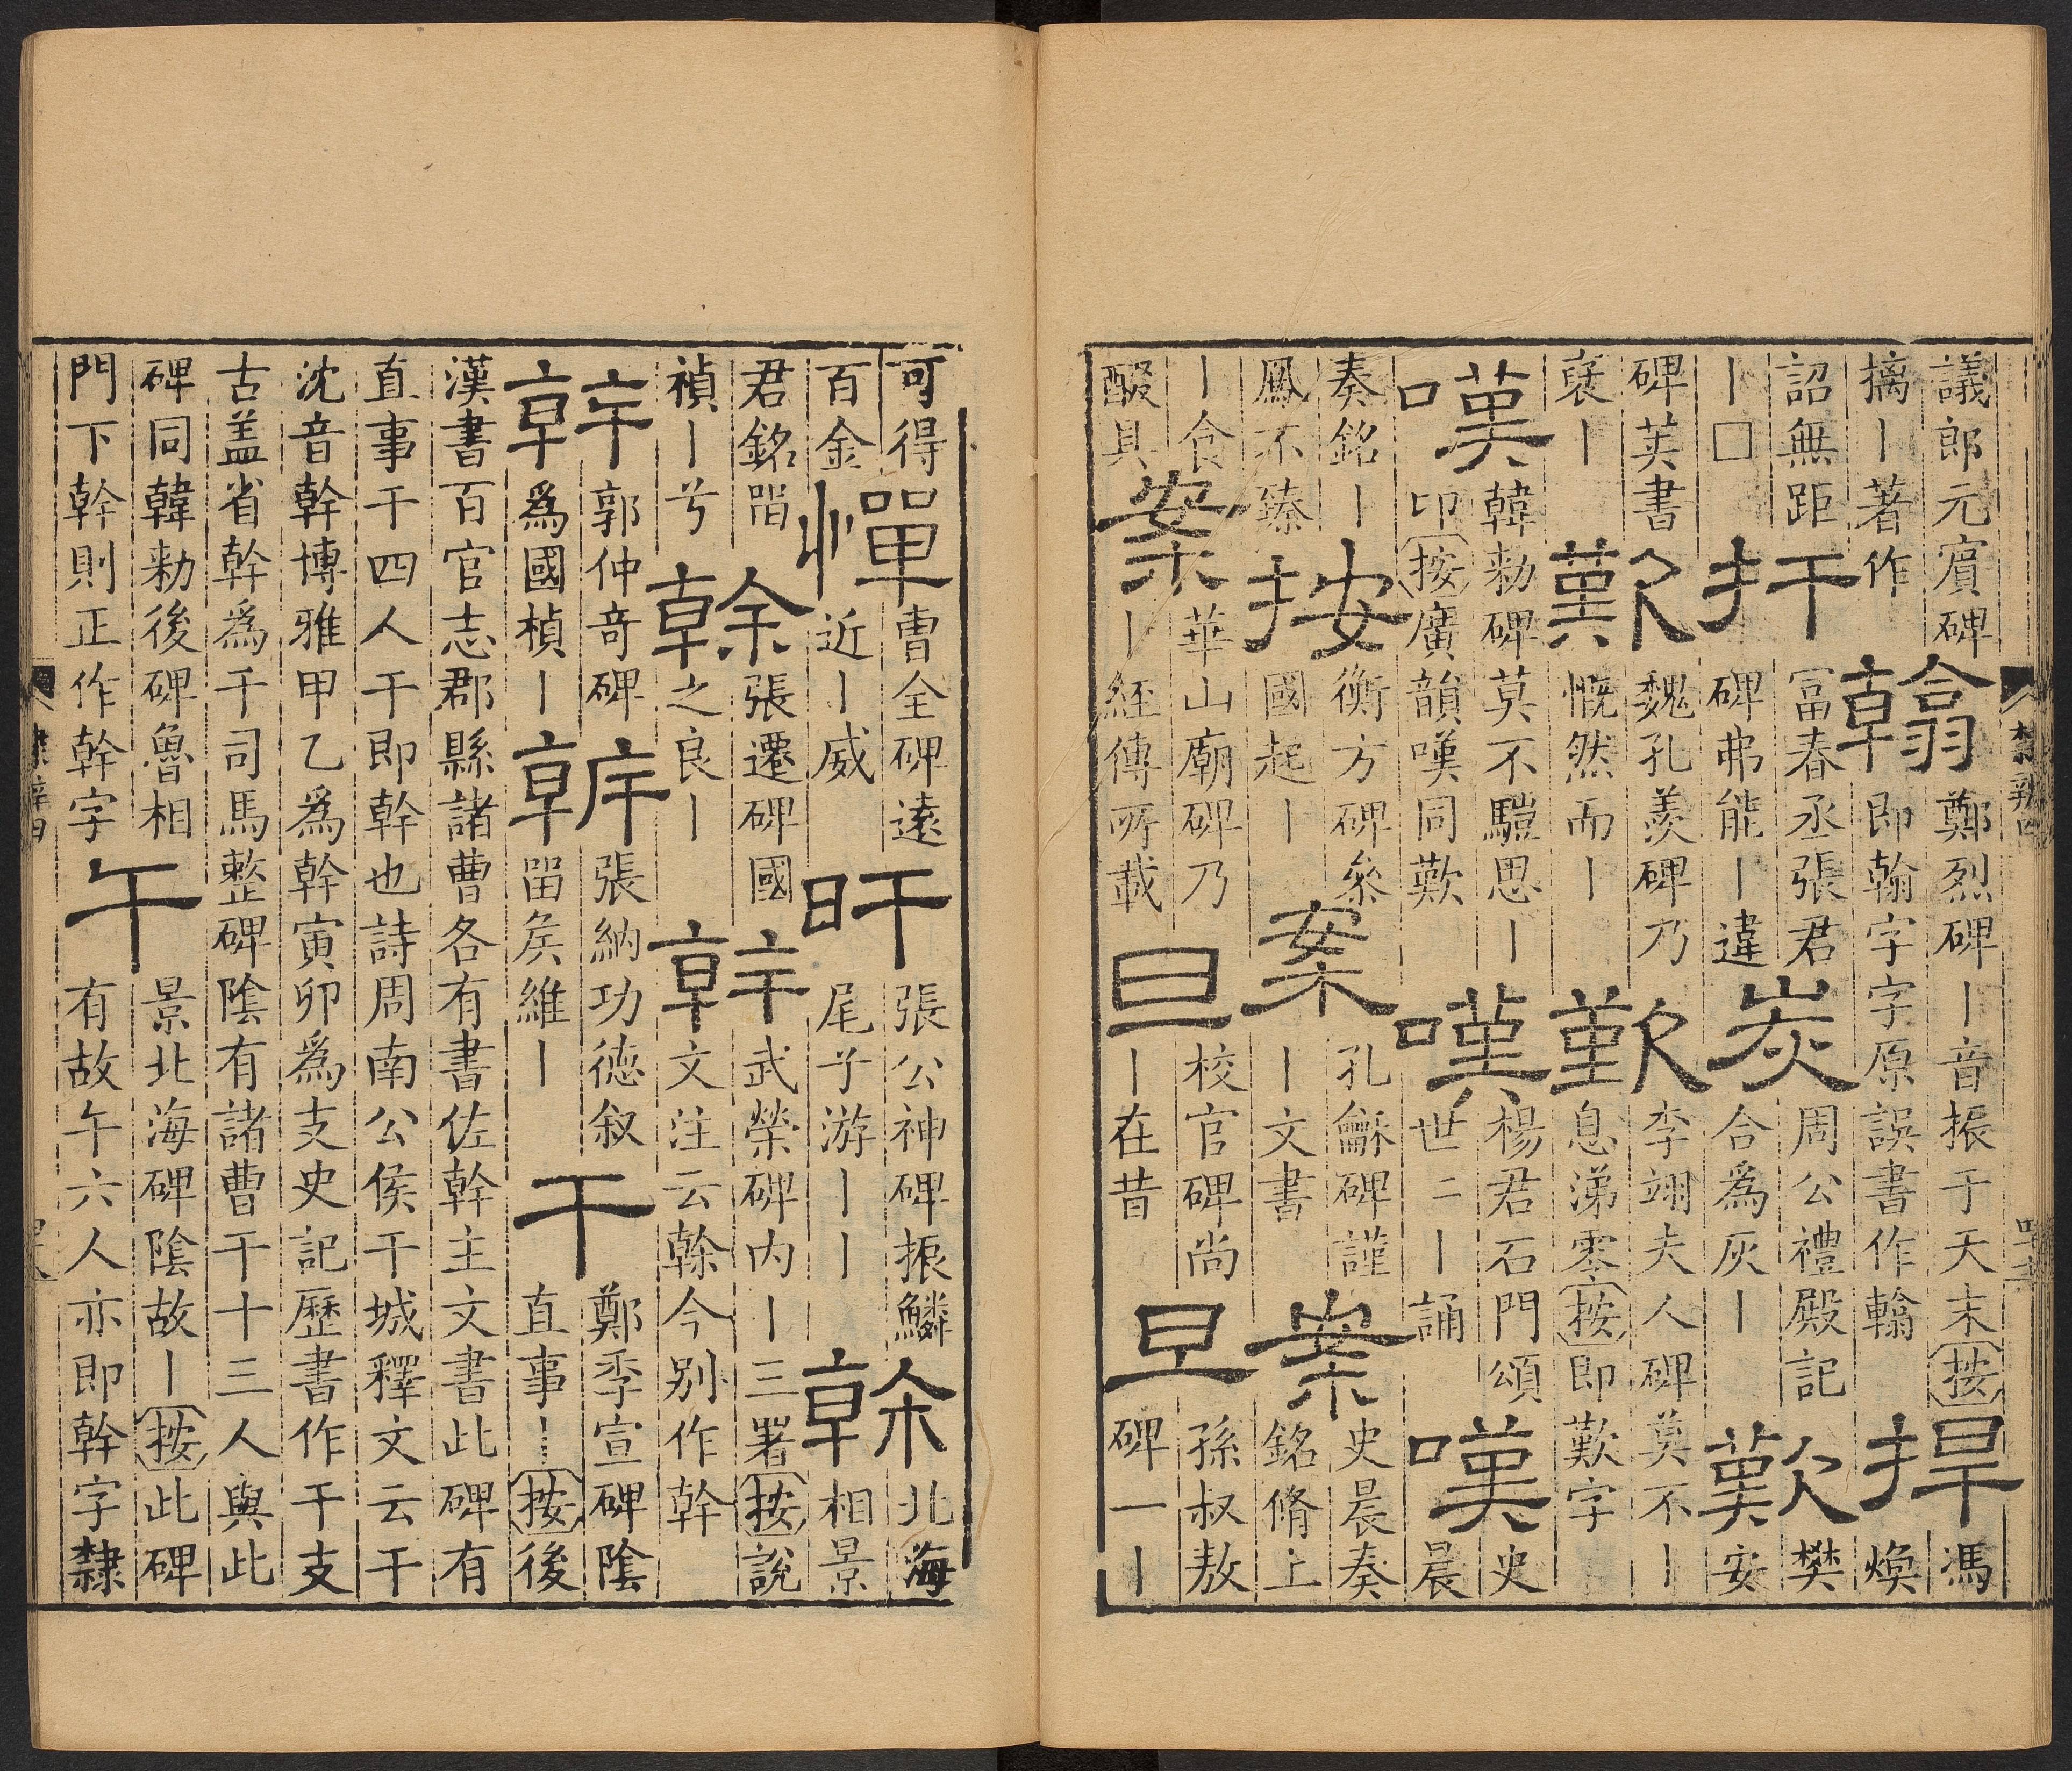 議郎元賓碑
摛丨著作
翰
鄭烈碑丨音振于天末按
即翰字字原誤書作翰
捍
馮
煥
詔無距
丨□
扞
富春丞張君
碑弗能丨違
炭
周公禮殿記
合為灰丨
歎
樊
安
碑芙書
裦丨
歎
魏孔羨碑乃
慨然而丨
歎
李翊夫人碑莫不丨
息涕零按即歎字
嘆
韓勑碑莫不驩思丨
卬按廣韻嘆同歎
嘆
楊君石門頌
世〻丨誦
嘆
史
晨
奏銘丨
鳳不臻
按
衡方碑叅
國起丨
案
孔龢碑謹
丨文書
案
史晨奏
銘脩上
丨食
醊具
案
華山廟碑乃
丨經傳所載
旦
校官碑尚
丨在昔
旦
孫叔敖
碑一丨
隸辨四
可得
百金
憚
曹全碑遠
近丨威
旰
張公神碑振鱗
尾子游丨丨
榦
北海
相景
君銘㽞
禎丨兮
榦
張遷碑國
之良丨
幹
武榮碑内丨三署按說
文注云榦今別作幹
幹
郭仲奇碑
爲國楨丨
幹
張納功德叙
㽞矦維丨
干
鄭季宣碑陰
直事丨按後
漢書百官志郡縣諸曹各有書佐幹主文書此碑有
直事干四人干即幹也詩周南公侯干城釋文云干
沈音幹博雅甲乙爲幹寅卯爲支史記歷書作干支
古盖省幹爲干司馬整碑陰有諸曹干十三人與此
碑同韓勑後碑魯相
門下幹則正作幹字
午
景北海碑陰故丨按此碑
有故午六人亦即幹字隸